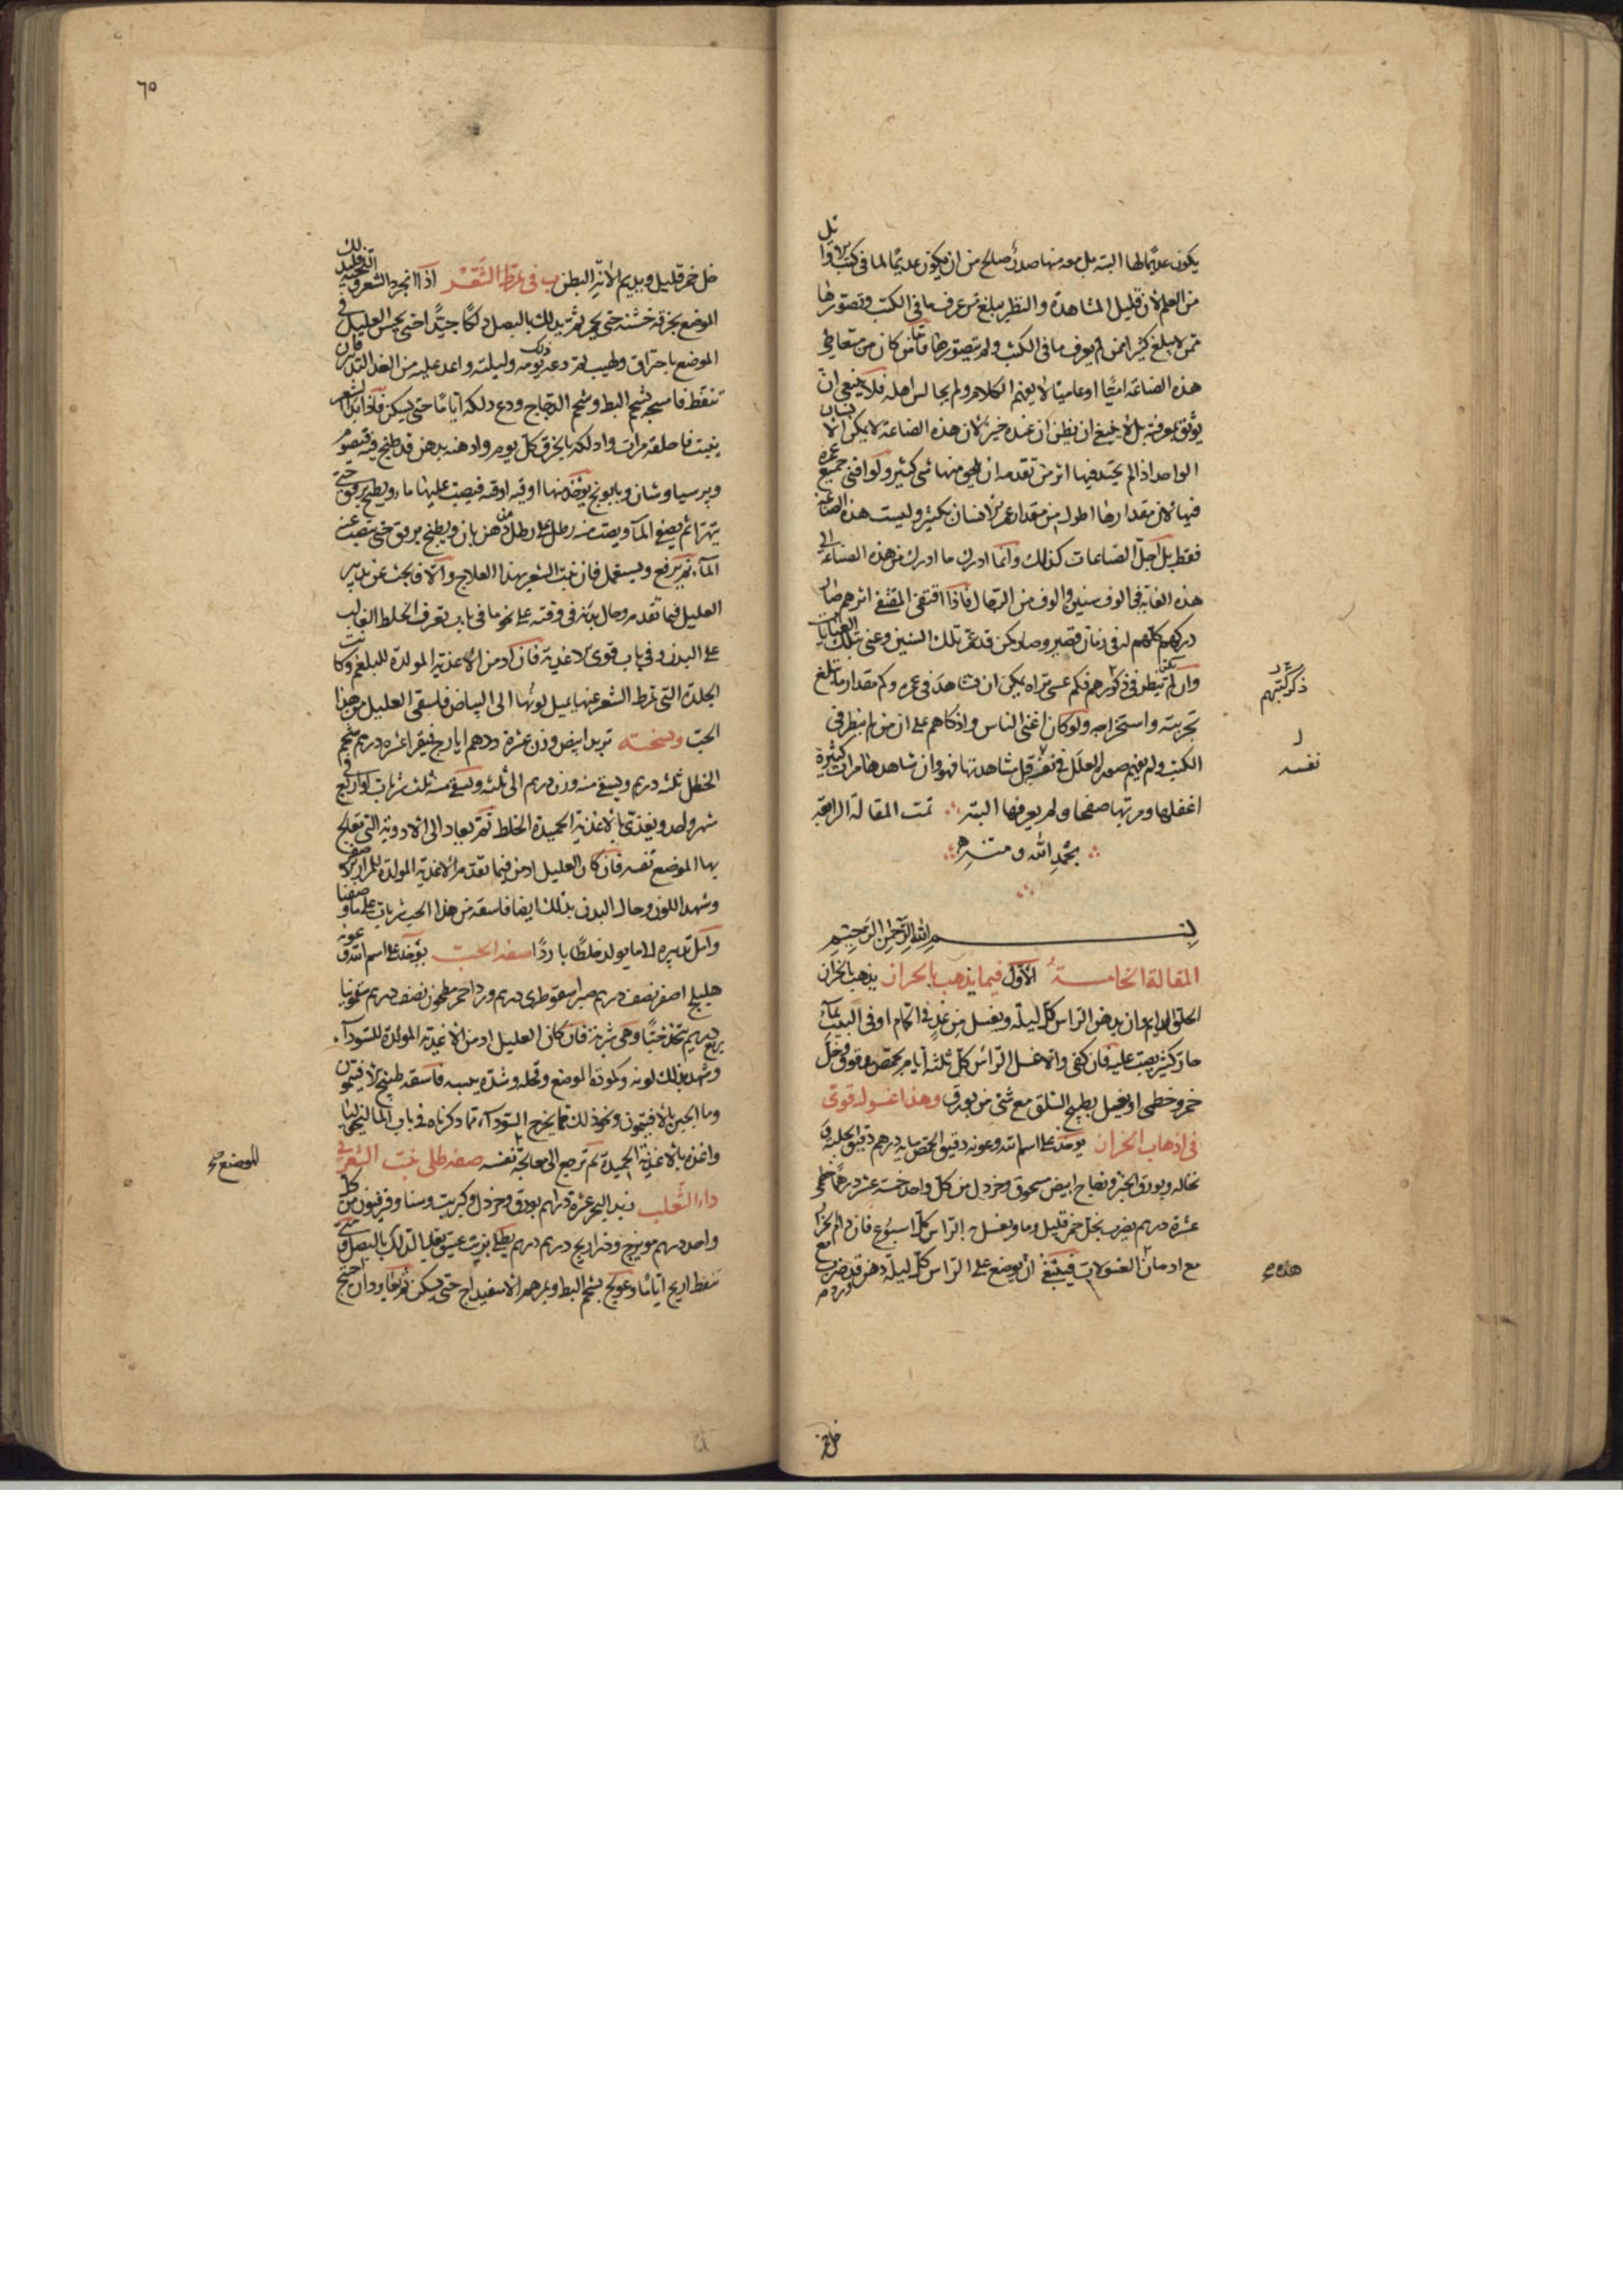 يكون عديمًا لها البتة بل معه منها صدرٌ صالح من ان يكون عديمًا لما في كتب
من العلم لان قليل المشاهدة والنظر يبلغ ممن عرف ما في الكتب وتصورها
ممن لا يبلغ كثيرا ممن لم يعرف ما في الكتب ولم يتصورها فامّا من كان من متعاطي
هذه الصناعة اميًّا او عاميًا لا يفهم الكلام ولم يجالس اهله فلا ينبغي ان
يوثق بمعرفته بل لا ينبغي ان يظن ان عنده خير لان هذه الصناعة لا يمكن الانسان
الواحد اذا لم يحتذ فيها اثر من تقدمه ان يلحق منها شي كثير ولو افنى جميع عمره
فيها لان مقدارها اطول من مقدار عمر الانسان بكثير وليست هذه الصناعة
فقط بل اجلّ الصناعات كذلك وانما ادرك ما ادرك من هذه الصناعة الى
هذه الغاية في الوف سنين والوف من الرجال فاذا اقتفى المقتفى اثرهم صار
دركهم كلهم له في زمان قصير وصار كمن قد عمّر تلك السنين وعنى بتلك العنايات
وان لم ينظر في ذكورهم فكم عسى تراه يمكن ان شاهد في عمره وكم مقدار ما تبلغ
ذكر كتبهم
تجربته واستخراجه ولو كان اغنى الناس واذكاهم على ان من لم ينظر في
الكتب ولم يفهم صور العلل في نفسه قبل مشاهدتها فهو وان شاهدها مرات كثيرة
نفسه
اغفلها ومر بها صفحا ولم يعرفها البتة تمت المقالة الرابعة
بحمد الله ومنه
بسم الله الرحمن الرحيم
المقالة الخامسة الاوّل فيما يذهب بالحزاز يذهب بالحزاز
الحلق الدايم وان يدهن الراس كلّ ليلة ويغسل من غدٍ في الحمام او في البيت بماء
حار كثير يصب عليه فان كفى والا غسل الراس كلّ ثلثة ايام بحمص مدقوق وخلّ
خمر وخطمى او يغسل بطبيخ السلق مع شئ من بورق وهذا غسول قوى
في اذهاب الحزاز يوخذ على اسم الله وعونه دقيق الحمص مايه درهم دقيق الحلبة و
نخاله وبورق الخبز وزجاج ابيض مسحوق وخردل من كل واحد خمسة عشر درهمًا خطمى
عشرة درهم يضرب بخل خمر قليل وما ويغسل به الراس كلّ اسبوع فان دام الحزاز
مع ادمان الغسولات فينبغي ان يوضع على الراس كلّ ليلة دهن ورد قد ضرب مع
هذه
خل خمر
٦٥
خل خمر قليل ويديم الانة البطن ب في تمرّط الشَّعَر اذا انجرد الشعر
الموضع بخرقة خشنة حتى يحمر ثم يدلك بالبصل دلكًا جيّدا حتى يحس العليل في
الموضع باحتراق ولهيب ثم دعه ذلك يومه وليلته واعد عليه من الغد التدبير فان
تنفط فامسحه بشحم البط وشحم الدجاج ودع دلكه ايامًا حتى يسكن فاذا ابتدا الشعر
ينبت فاحلقه مرات وادلكه بالخرق كل يوم وادهنه بدهن قد طبخ فيه قيصوم
وبرسياوشان وبابونج يوخذ منها اوقيه اوقيه فيصب عليها ما ويطبخ برفق حتى
يتهرا ثم يصفى الماء ويصب منه رطل على رطل من دهن بان ويطبخ برفق حتى يتصعد عنه
الماء ثم يرفع ويستعمل فان نبت الشعر بهذا العلاج والا فابحث عن تدبير
العليل فيما تقدم وحال بدنه في وقته على نحو ما في باب تعرف الخلط الغالب
على البدن وفي باب قوى الاغذية فان كان ادمن الاغذية المولدة للبلغم وكانت
الجلدة التى تمرط الشعر عنها يميل لونها الى البياض فليسقى العليل من هذا
الحب ونسخته تربد ابيض وزن عشرة درهم ايارج فيقرا عشرة درهم شحم
الحنظل ثلثه درهم ويسقى منه وزن درهم الى ثلثه ويسقى منه ثلث شربات او اربع في
شهر واحد ويغذى بالاغذية الحميدة الخلط ثم يعاد الى الادوية التى تعالج
بها الموضع نفسه فان كان العليل ادمن فيما تقدم الاغذية المولدة للمرار الاصفر
وشهد اللون وحال البدن بذلك ايضا فاسقه من هذا الحب شربات على ما وصفنا
وامل تدبيره الى ما يولد خلطًا باردًا صفه الحب يوخذ على اسم الله وعونه
هليلج اصفر نصف درهم صبر اسقوطرى درهم ورد احمر مطحون نصف درهم سقمونيا
ربع درهم يتخذ حبًا وهى شربة فان كان العليل ادمن الاغذية المولدة للسوداء
وشهد بذلك لونه وكمودة الموضع وقحله وشدة يبسه فاسقه طبيخ الافيتمون
وما الجبن بالافيتمون ونحو ذلك مما يخرج السوداء مما ذكرناه في باب الماليخوليا
واغذه بالاغذية الحميدة ثم ترجع الى معالجة نفسه صفه طلى ينبت الشعر في
للموضع صح
داء الثعلب زبد البحر عشرة دراهم بورق وخردل وكبريت وسنا وفربيون من كل
واحد درهم مويزج وذراريح درهم درهم يطلى بزيت عتيق بعد الدلك بالبصل ومتى
تنفط اريح ايامًا وعولج بشحم البط وبمرهم الاسفيداج حتى يسكن ثم يعاود ان احتيج